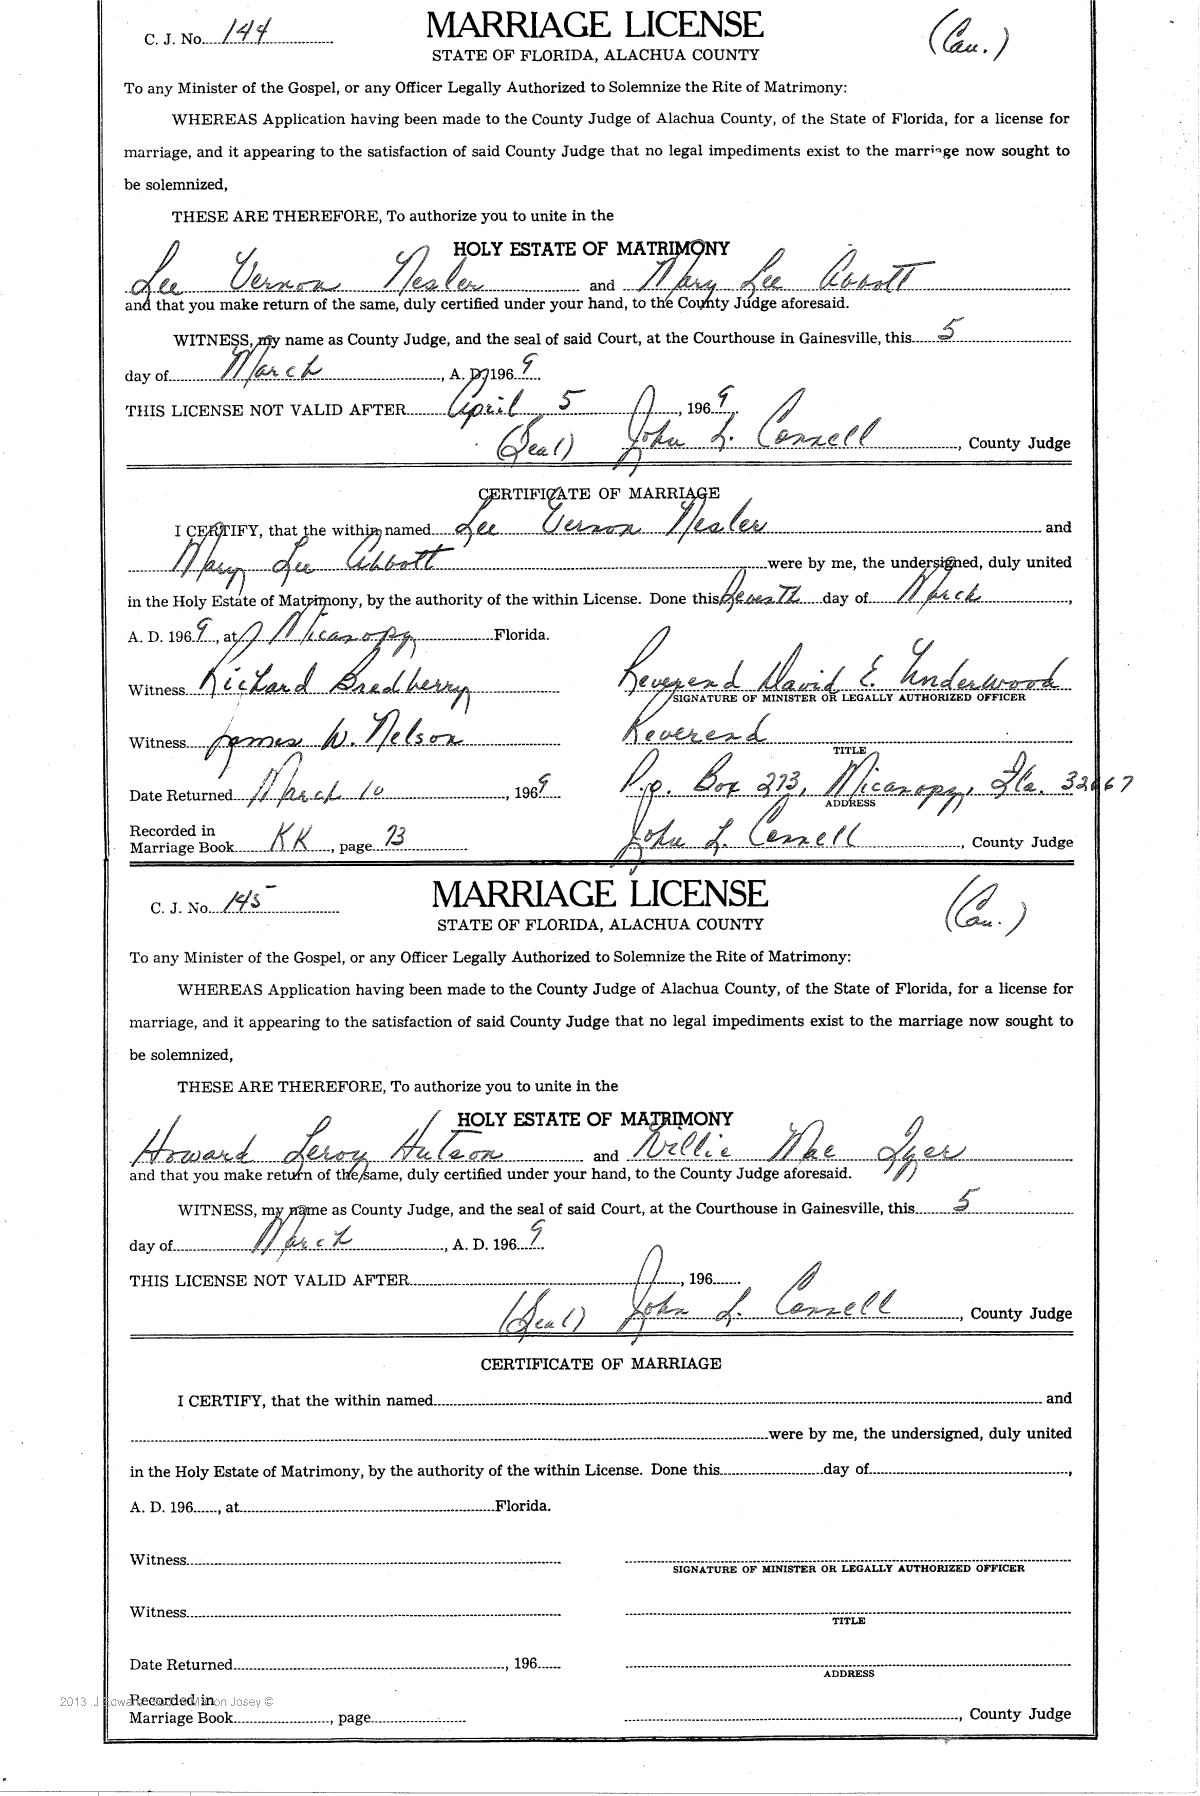 C. J. No. 144 MARRIAGE LICENSE (Cau.)
STATE OF FLORIDA, ALACHUA COUNTY
To any Minister of the Gospel, or any Officer Legally Authorized to Solemnize the Rite of Matrimony:
WHEREAS Application having been made to the County Judge of Alachua County, of the State of Florida, for a license for
marriage, and it appearing to the satisfaction of said County Judge that no legal impediments exist to the marriage now sought to
be solemnized,
THESE ARE THEREFORE, To authorize you to unite in the
HOLY ESTATE OF MATRIMONY
Lee Vernon Nesler and Mary Lee Abbott
and that you make return of the same, duly certified under your hand, to the County Judge aforesaid.
WITNESS, my name as County Judge, and the seal of said Court, at the Courthouse in Gainesville, this 5
day of March, A. D. 1969.
THIS LICENSE NOT VALID AFTER April 5, 1969.
(Seal) John L. Connell, County Judge
CERTIFICATE OF MARRIAGE
I CERTIFY, that the within named Lee Vernon Nesler and
Mary Lee Abbott were by me, the undersigned, duly united
in the Holy Estate of Matrimony, by the authority of the within License. Done this Seventh day of March,
A. D. 1969, at Micanopy Florida.
Witness Richard Bradberry Reverend David E. Underwood
SIGNATURE OF MINISTER OR LEGALLY AUTHORIZED OFFICER
Witness James W. Nelson Reverend
TITLE
Date Returned March 10, 1969 P.o. Box 273, Micanopy, Fla. 32667
ADDRESS
Recorded in
Marriage Book KK, page 73 John L. Connell, County Judge
C. J. No. 145 MARRIAGE LICENSE (Cau.)
STATE OF FLORIDA, ALACHUA COUNTY
To any Minister of the Gospel, or any Officer Legally Authorized to Solemnize the Rite of Matrimony:
WHEREAS Application having been made to the County Judge of Alachua County, of the State of Florida, for a license for
marriage, and it appearing to the satisfaction of said County Judge that no legal impediments exist to the marriage now sought to
be solemnized,
THESE ARE THEREFORE, To authorize you to unite in the
HOLY ESTATE OF MATRIMONY
Howard Leroy Hutson and Willie Mae
and that you make return of the same, duly certified under your hand, to the County Judge aforesaid.
WITNESS, my name as County Judge, and the seal of said Court, at the Courthouse in Gainesville, this 5
day of March, A. D. 1969.
THIS LICENSE NOT VALID AFTER, 196
(Seal) John L. Connell, County Judge
CERTIFICATE OF MARRIAGE
I CERTIFY, that the within named and
were by me, the undersigned, duly united
in the Holy Estate of Matrimony, by the authority of the within License. Done this day of,
A. D. 196, at Florida.
Witness
SIGNATURE OF MINISTER OR LEGALLY AUTHORIZED OFFICER
Witness
TITLE
Date Returned, 196
ADDRESS
Recorded in
2013 Josey ©
Marriage Book, page, County Judge